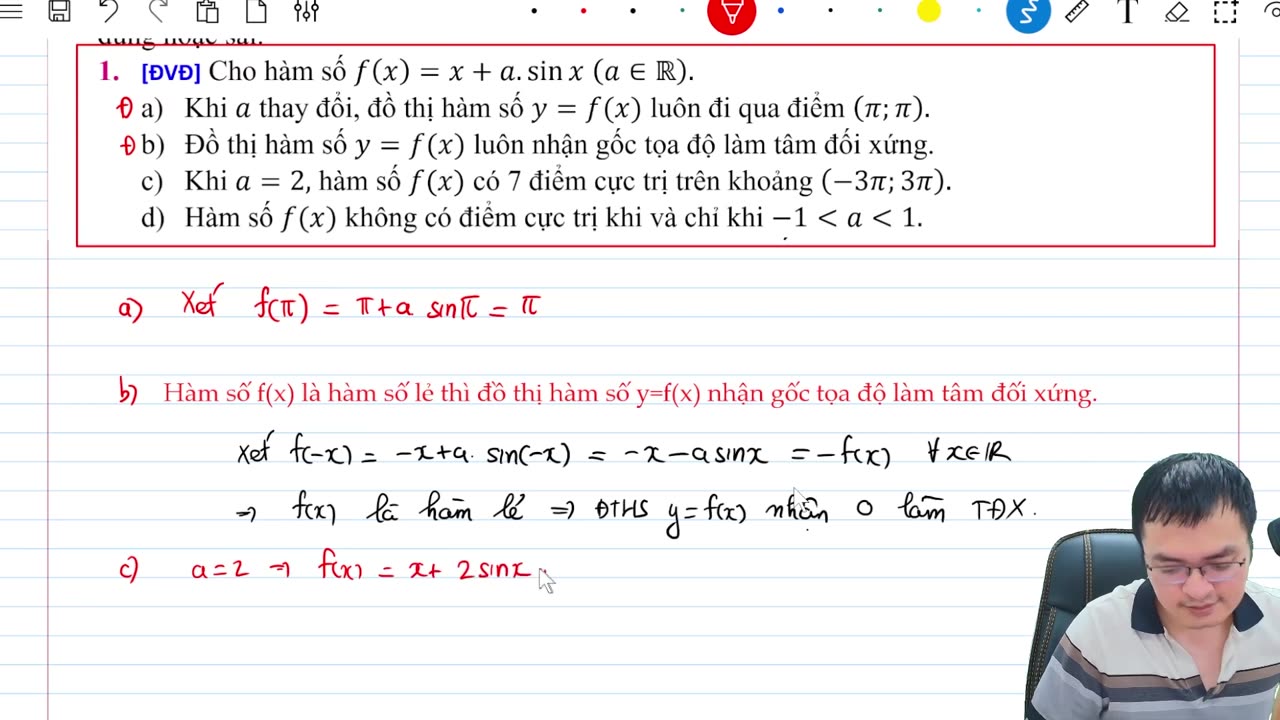 đúng hoặc sai.
1. [ĐVĐ] Cho hàm số f(x) = x + a. sin x (a ∈ ℝ).
Đ a) Khi a thay đổi, đồ thị hàm số y = f(x) luôn đi qua điểm (π; π).
Đ b) Đồ thị hàm số y = f(x) luôn nhận gốc tọa độ làm tâm đối xứng.
c) Khi a = 2, hàm số f(x) có 7 điểm cực trị trên khoảng (−3π; 3π).
d) Hàm số f(x) không có điểm cực trị khi và chỉ khi −1 < a < 1.
a) Xét f(π) = π + a sinπ = π
b) Hàm số f(x) là hàm số lẻ thì đồ thị hàm số y=f(x) nhận gốc tọa độ làm tâm đối xứng.
Xét f(-x) = -x + a. sin(-x) = -x - a sinx = - f(x) ∀x∈ℝ
⇒ f(x) là hàm lẻ ⇒ ĐTHS y = f(x) nhận O làm TĐX.
c) a = 2 ⇒ f(x) = x + 2sinx.